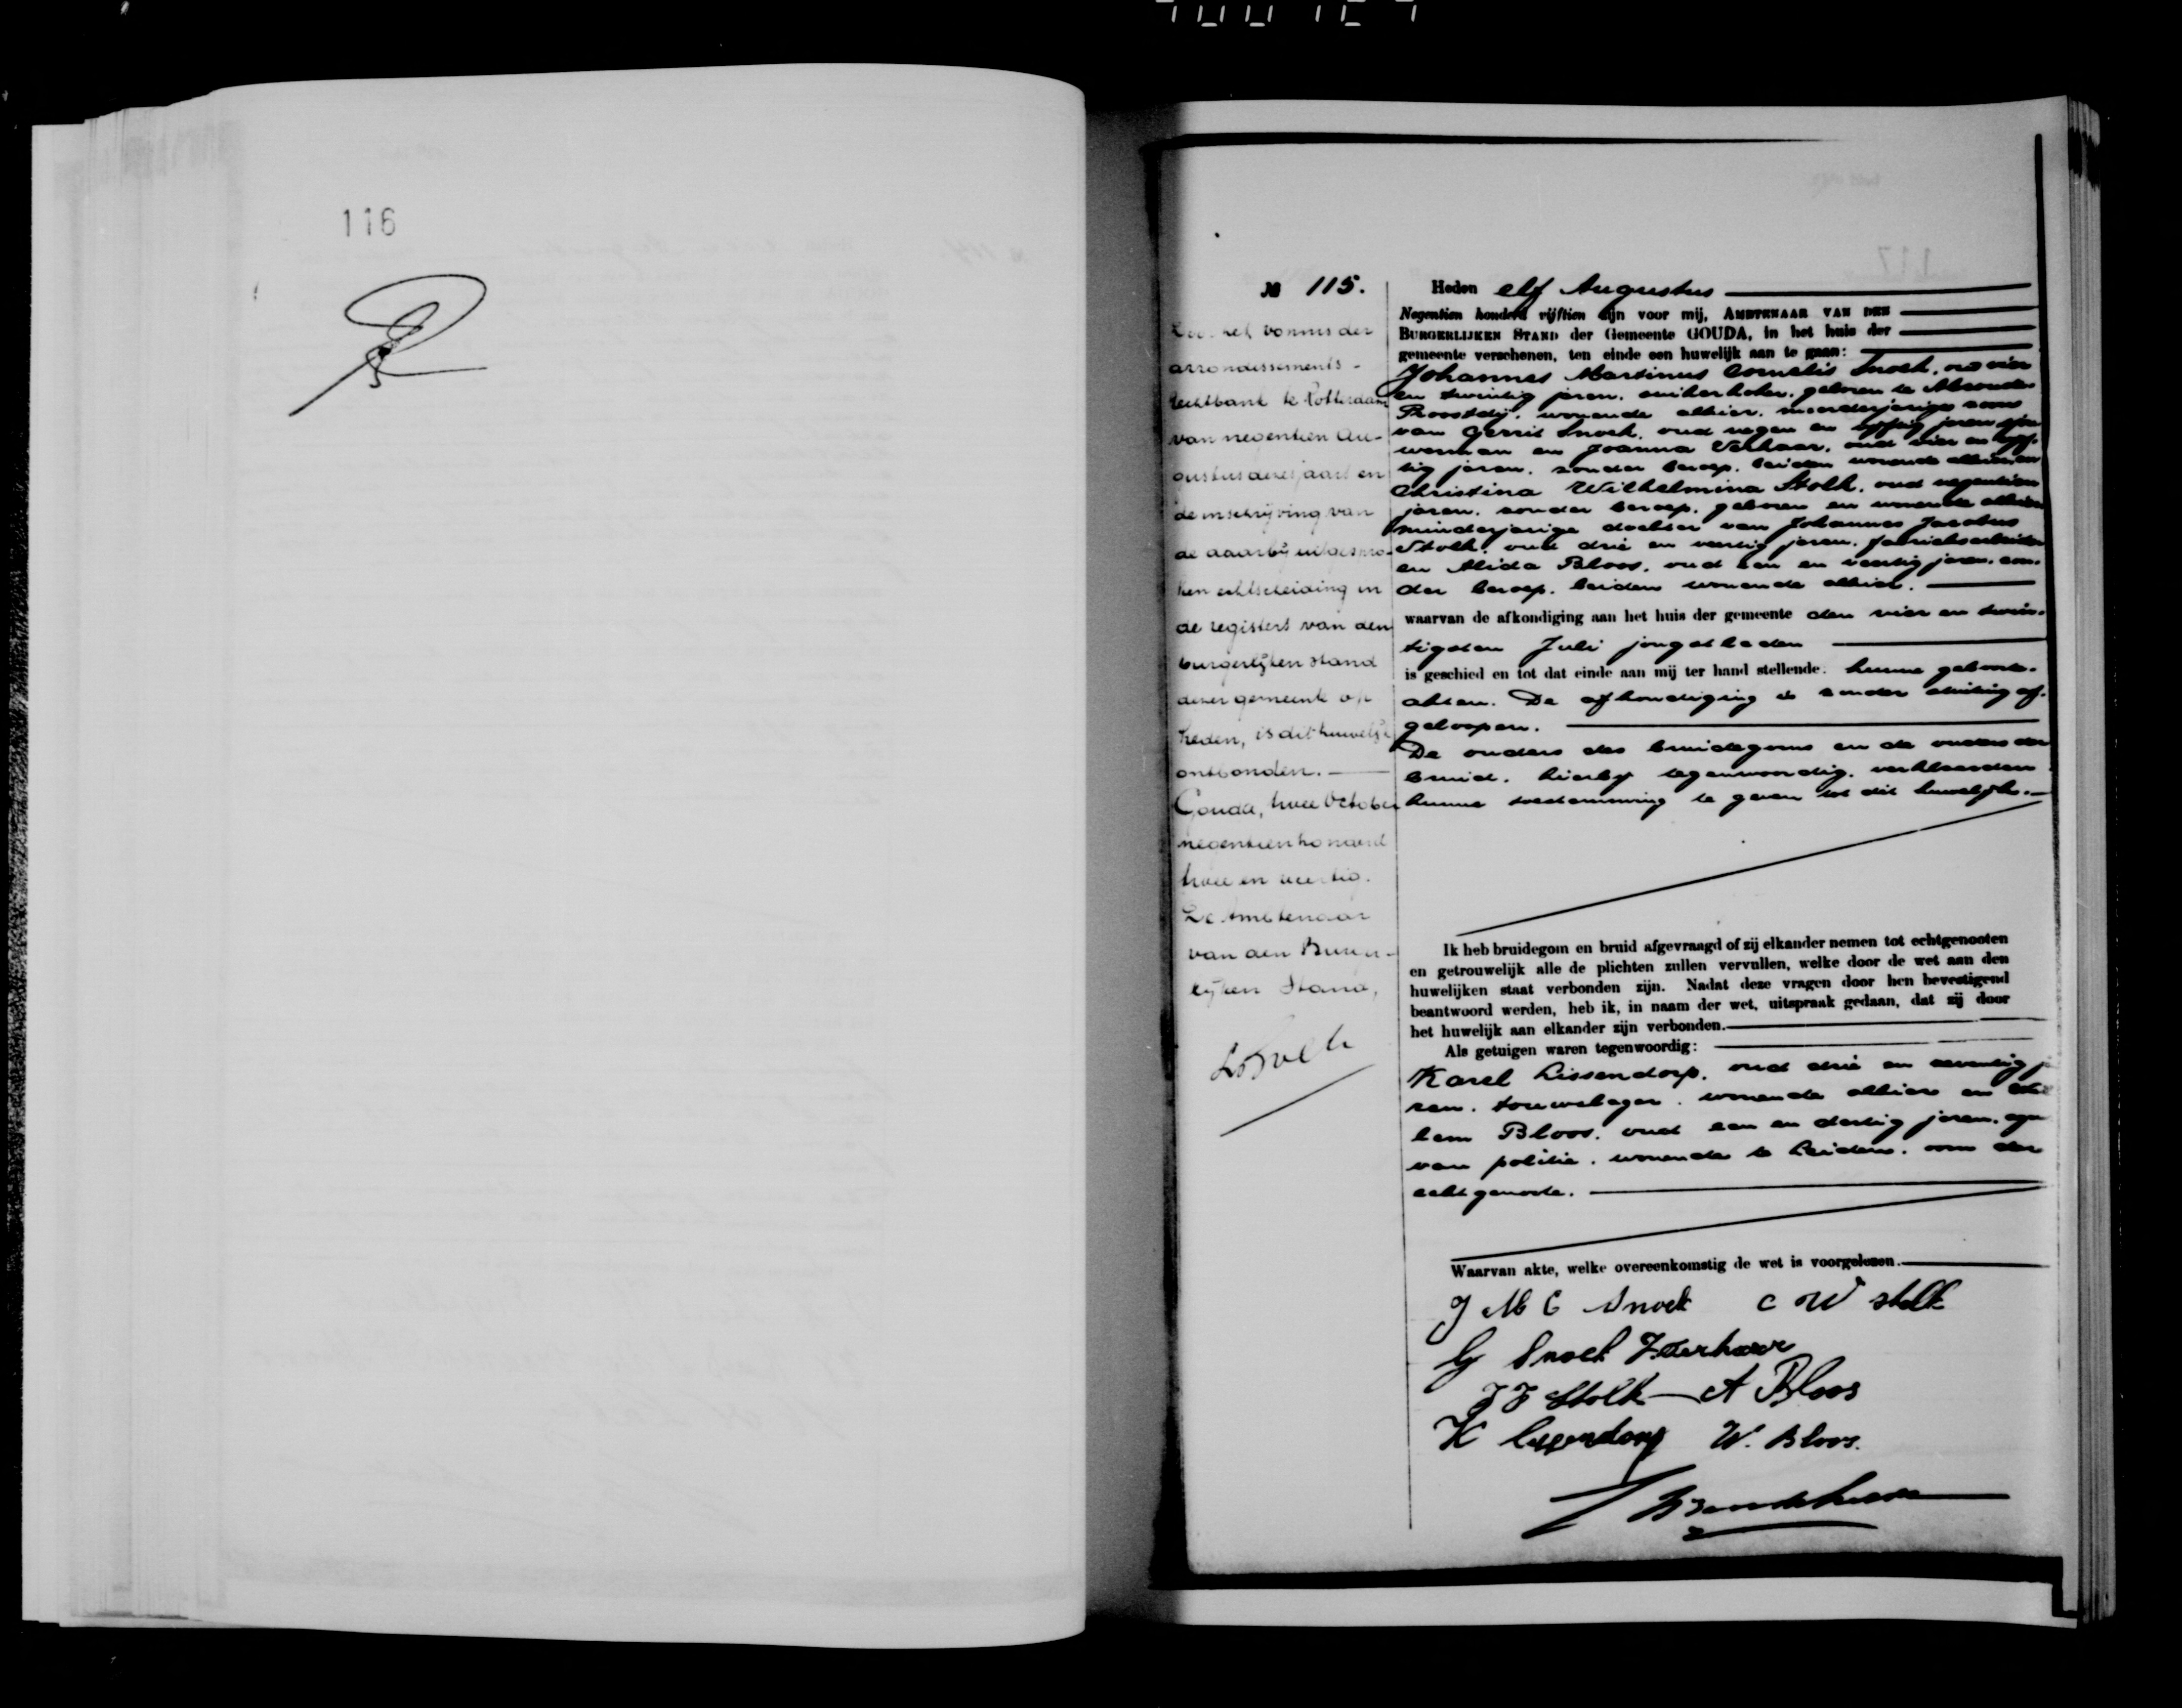 116
№ 115.
Door het vonnis der
arrondissements-
rechtbank te Rotterdam
van negentien Au-
gustus dezes jaars en
de inschrijving van
de daarbij uitgespro-
ken echtscheiding in
de registers van den
burgerlijken stand
dezer gemeente op
heden, is dit huwelijk
ontbonden.
Gouda, twee October
negentienhonderd
twee en veertig.
De Ambtenaar
van den Burger-
lijken Stand,
Heden elf Augustus
Negentien honderd vijftien zijn voor mij, AMBTENAAR VAN DEN
BURGERLIJKEN STAND der Gemeente GOUDA, in het huis der
gemeente verschenen, ten einde een huwelijk aan te gaan:
Johannes Martinus Cornelis Snoek, oud vier
en twintig jaren, suikerkoker, geboren te Abcoude
Proostdij, wonende alhier, meerderjarige zoon
van Gerrit Snoek, oud negen en vijftig jaren, spoor
werkman en Joanna Verhaar, oud vier en vijf-
tig jaren, zonder beroep, beiden wonende alhier, en
Christina Wilhelmina Stolk, oud negentien
jaren, zonder beroep, geboren en wonende alhier
minderjarige dochter van Johannes Jacobus
Stolk, oud drie en veertig jaren, fabrieksarbeider
en Alida Bloos, oud een en veertig jaren, zon-
der beroep, beiden wonende alhier.
waarvan de afkondiging aan het huis der gemeente den vier en twin-
tigsten Juli jongstleden
is geschied en tot dat einde aan mij ter hand stellende: hunne geboorte-
akten. De afkondiging is zonder stuiting af-
geloopen.
De ouders des bruidegoms en de ouders der
bruid, hierbij tegenwoordig, verklaarden
hunne toestemming te geven tot dit huwelijk.
Ik heb bruidegom en bruid afgevraagd of zij elkander nemen tot echtgenooten
en getrouwelijk alle de plichten zullen vervullen, welke door de wet aan den
huwelijken staat verbonden zijn. Nadat deze vragen door hen bevestigend
beantwoord werden, heb ik, in naam der wet, uitspraak gedaan, dat zij door
het huwelijk aan elkander zijn verbonden.
Als getuigen waren tegenwoordig:
Karel Lissendorp, oud drie en zeventig ja
ren, touwslager, wonende alhier en Wil
lem Bloos, oud een en dertig jaren, agent
van politie, wonende te Leiden, oom der
echtgenoote.
Waarvan akte, welke overeenkomstig de wet is voorgelezen.
J M C Snoek C W Stolk
G Snoek J. Verhaar
J J Stolk A Bloos
K Lissendorp W. Bloos.